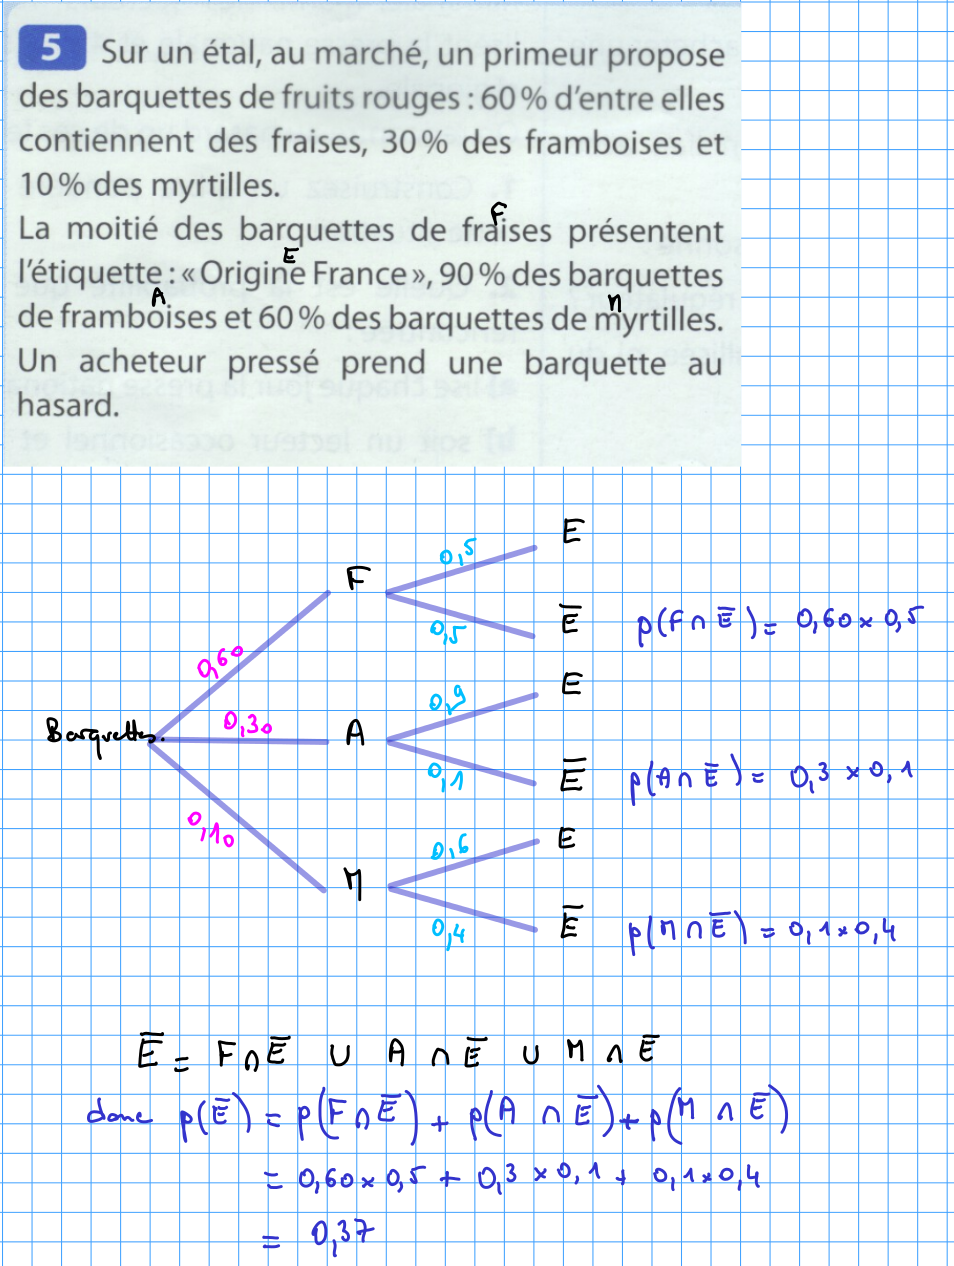 5 Sur un étal, au marché, un primeur propose
des barquettes de fruits rouges : 60 % d'entre elles
contiennent des fraises, 30 % des framboises et
10 % des myrtilles.
F
La moitié des barquettes de fraises présentent
E
l'étiquette : « Origine France », 90 % des barquettes
A
M
de framboises et 60 % des barquettes de myrtilles.
Un acheteur pressé prend une barquette au
hasard.
E
0,5
F
0,5
E̅ p(F ∩ E̅) = 0,60 × 0,5
0,60
E
0,9
0,30
Barquettes. A
0,1
E̅ p(A ∩ E̅) = 0,3 × 0,1
0,10
E
0,6
M
0,4
E̅ p(M ∩ E̅) = 0,1 × 0,4
E̅ = F ∩ E̅ ∪ A ∩ E̅ ∪ M ∩ E̅
donc p(E̅) = p(F ∩ E̅) + p(A ∩ E̅) + p(M ∩ E̅)
= 0,60 × 0,5 + 0,3 × 0,1 + 0,1 × 0,4
= 0,37